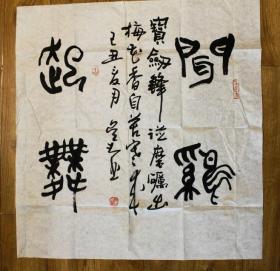 聞雞
寶劔鋒從磨礪出
梅花香自苦寒來
己丑夏月
起舞